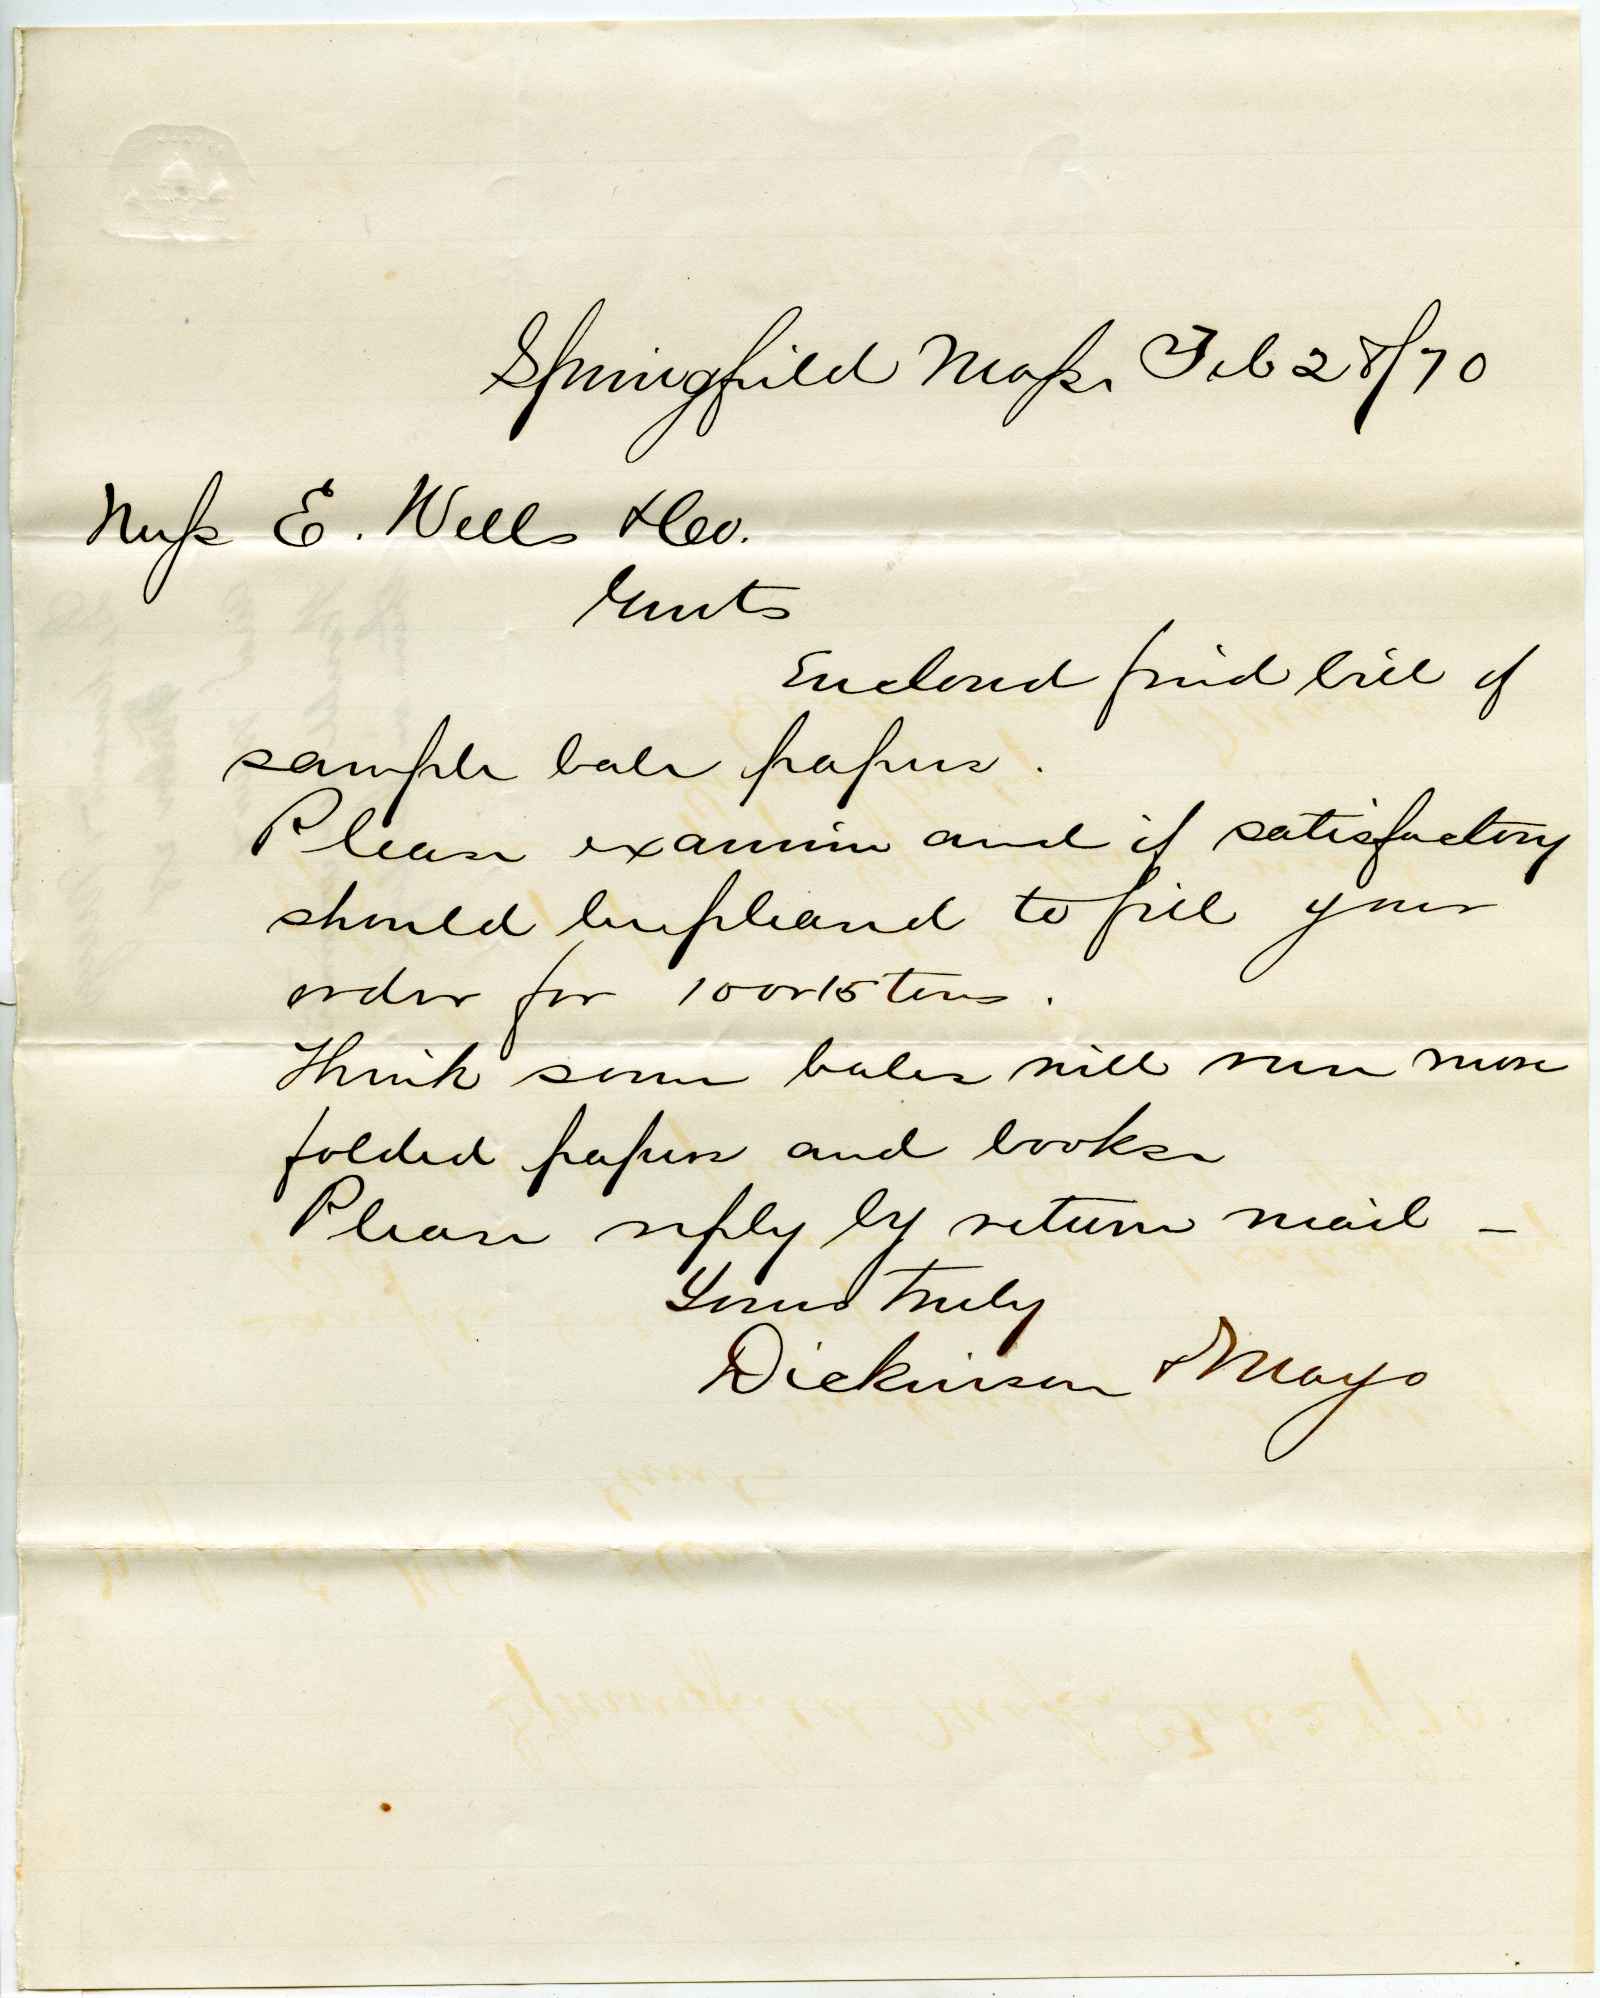 Springfield Mass. Feb 28/70
Mess E. Wells & Co.
Gents
Enclosed find bill of
sample bale papers.
Please examine and if satisfactory
should be pleased to fill your
order for 10 or 15 tons.
Think some bales will run more
folded papers and books
Please reply by return mail –
Yours truly
Dickinson & Mayo